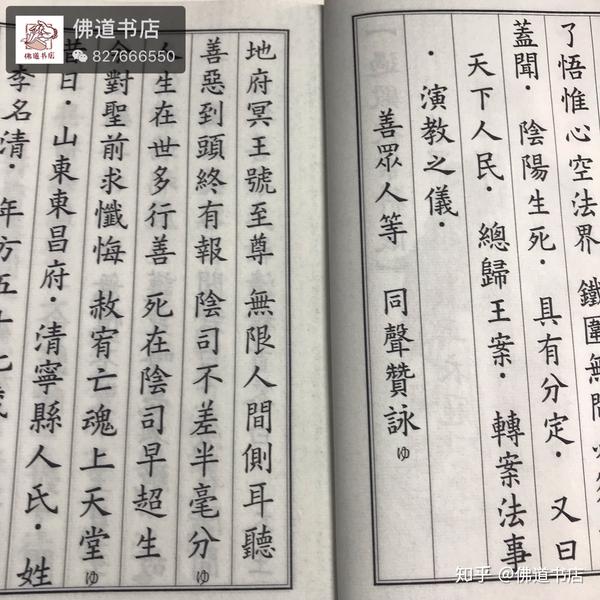 佛道书店
佛道书店
827666550
了悟惟心空法界 鐵圍無間
蓋聞·陰陽生死·具有分定·又曰
天下人民·總歸王案·轉案法事
·演教之儀·
善眾人等 同聲贊詠ゆ
地府冥王號至尊 無限人間側耳聽
善惡到頭終有報 陰司不差半毫分ゆ
人生在世多行善 死在陰司早超生
今對聖前求懺悔 赦宥亡魂上天堂ゆ
昔日·山東東昌府·清寧縣人氏·姓
李名清·年方五十七歲
知乎 @佛道书店